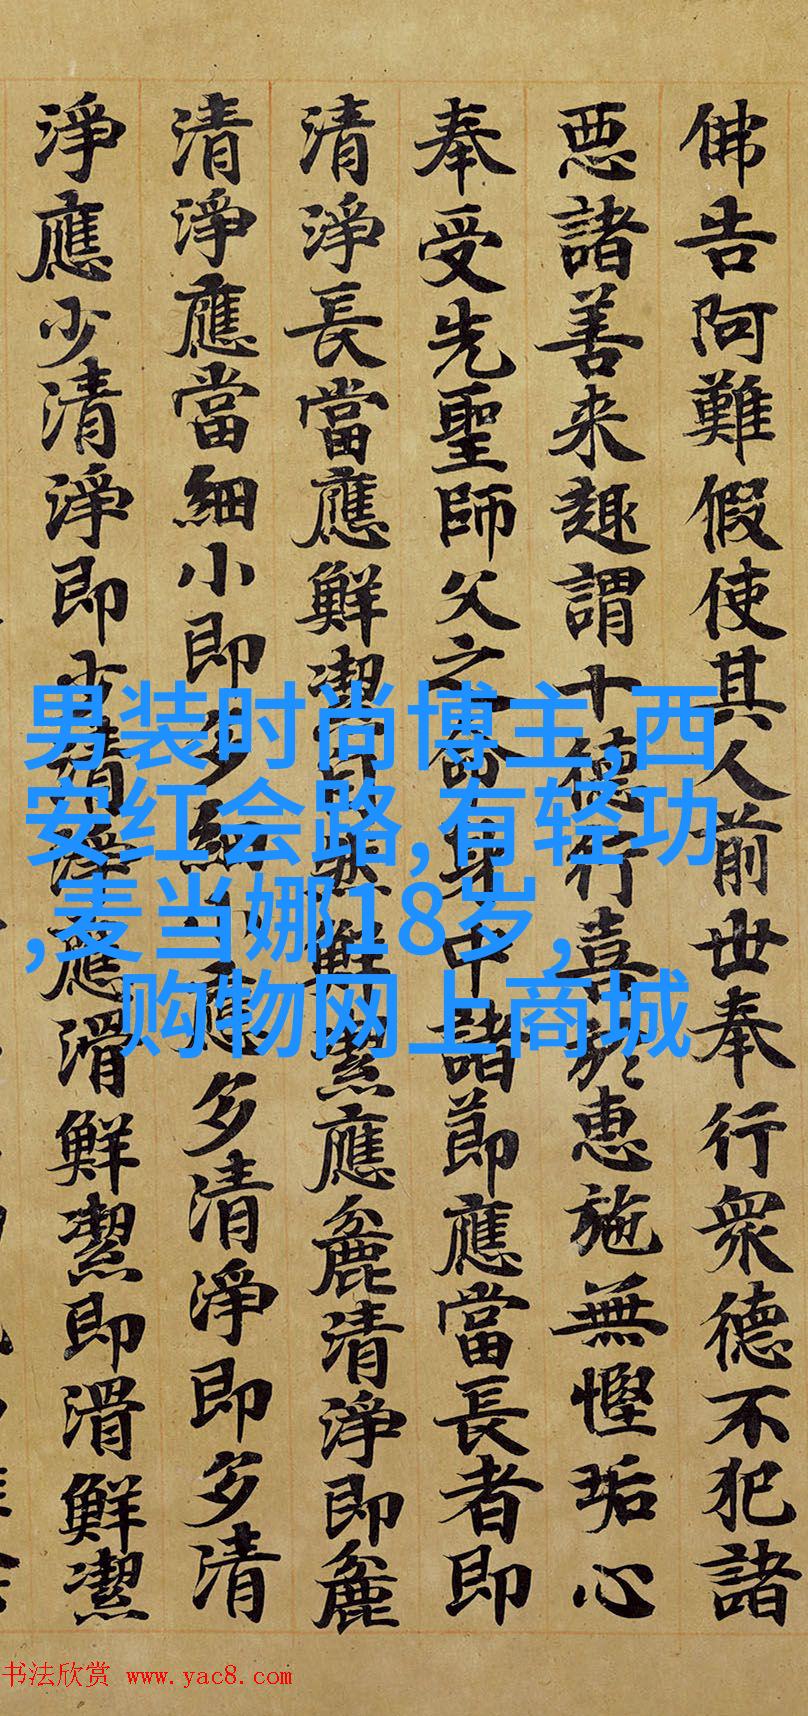 佛告阿難假使其人前世奉行衆德不犯諸
惡諸善来趣謂十德行喜於惠施無慳垢心
奉受先聖師父之命身中諸節應當長者即
清淨長當應鮮潔自然鮮潔應麁清淨即麁
清淨應當細小即多細小應多清淨即多清
淨應少清淨即少清淨應滑鮮潔即滑鮮潔
男装时尚博主,西
安红会路,有轻功
,麦当娜18岁,
购物网上商城
书法欣赏 www.yac8.com